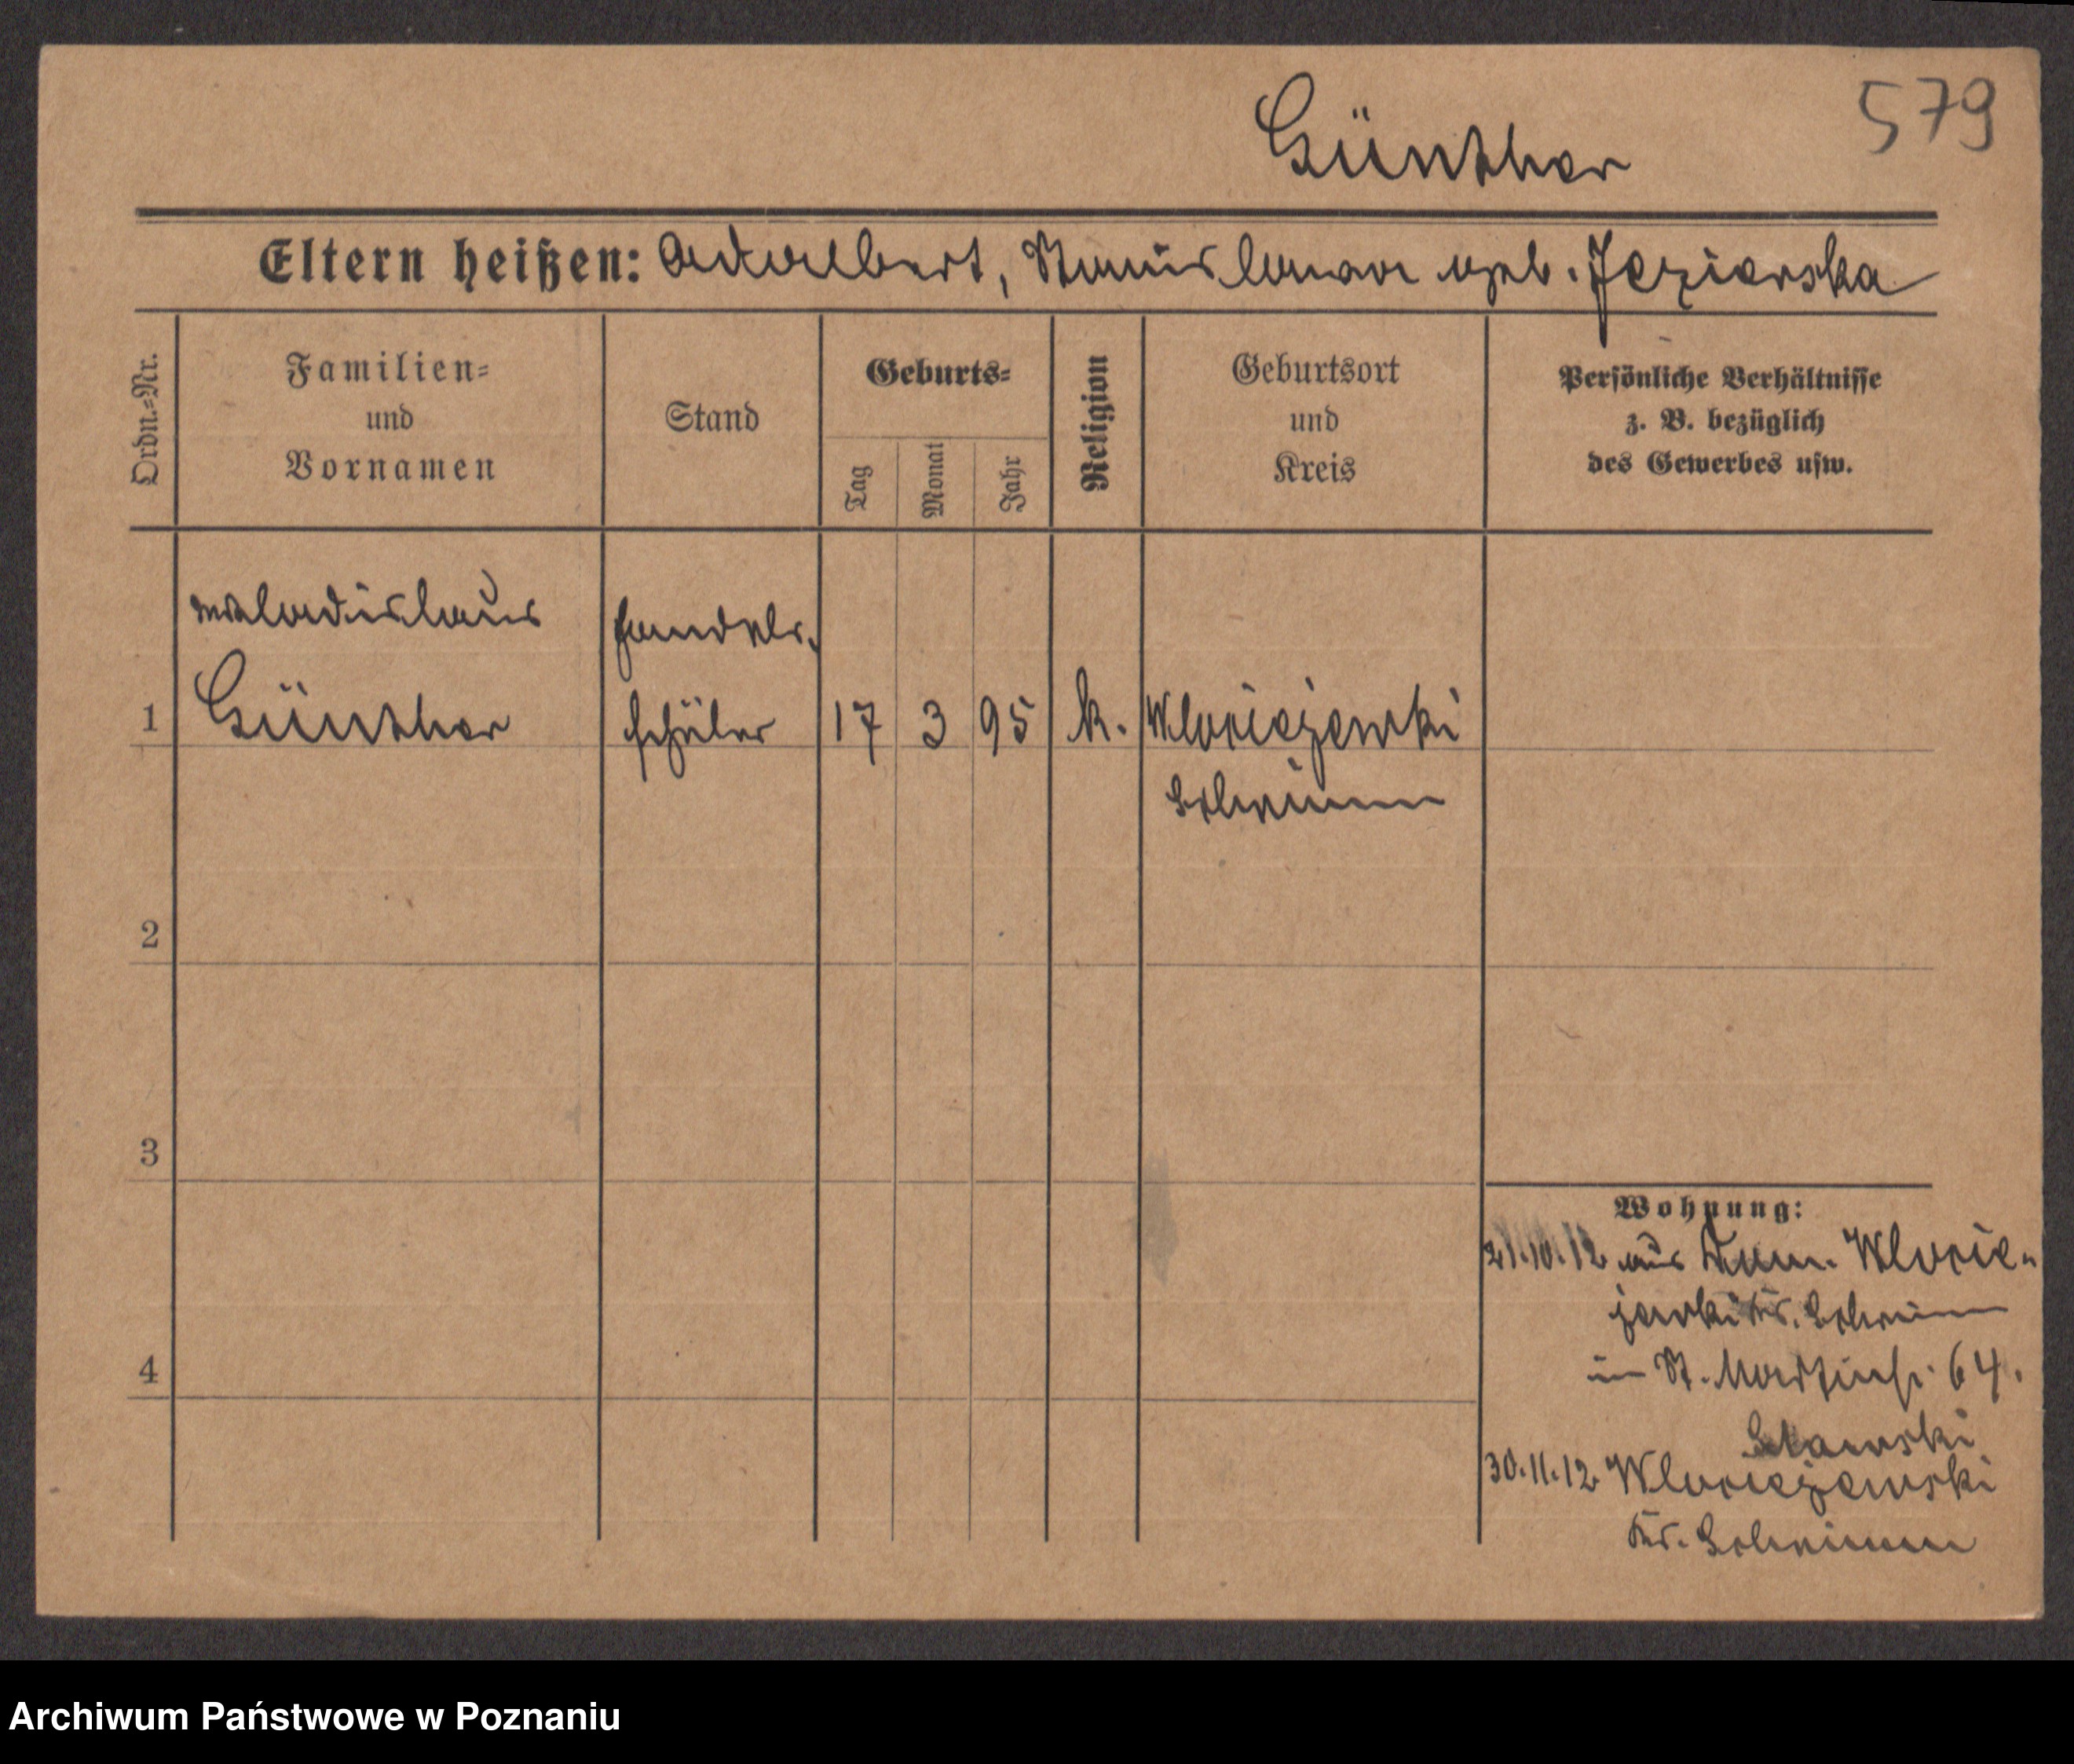 579
Günther
Eltern heißen: Adalbert, Stanislawa geb. Jezierska
Ordn.-Nr.
Familien-
und
Vornamen
Stand
Geburts-
Tag
Monat
Jahr
Religion
Geburtsort
und
Kreis
Persönliche Verhältnisse
z. B. bezüglich
des Gewerbes usw.
Wladislaus Handels-
1 Günther schüler 17 3 95 k. Wlosciejewki
Schrimm
2
3
4
Wohnung:
21.10.12 aus Dom. Wloscie-
jewki Kr. Schrimm
in St. Martinstr. 64.
30.11.12 Wlosciejewski
Kr. Schrimm
Archiwum Państwowe w Poznaniu